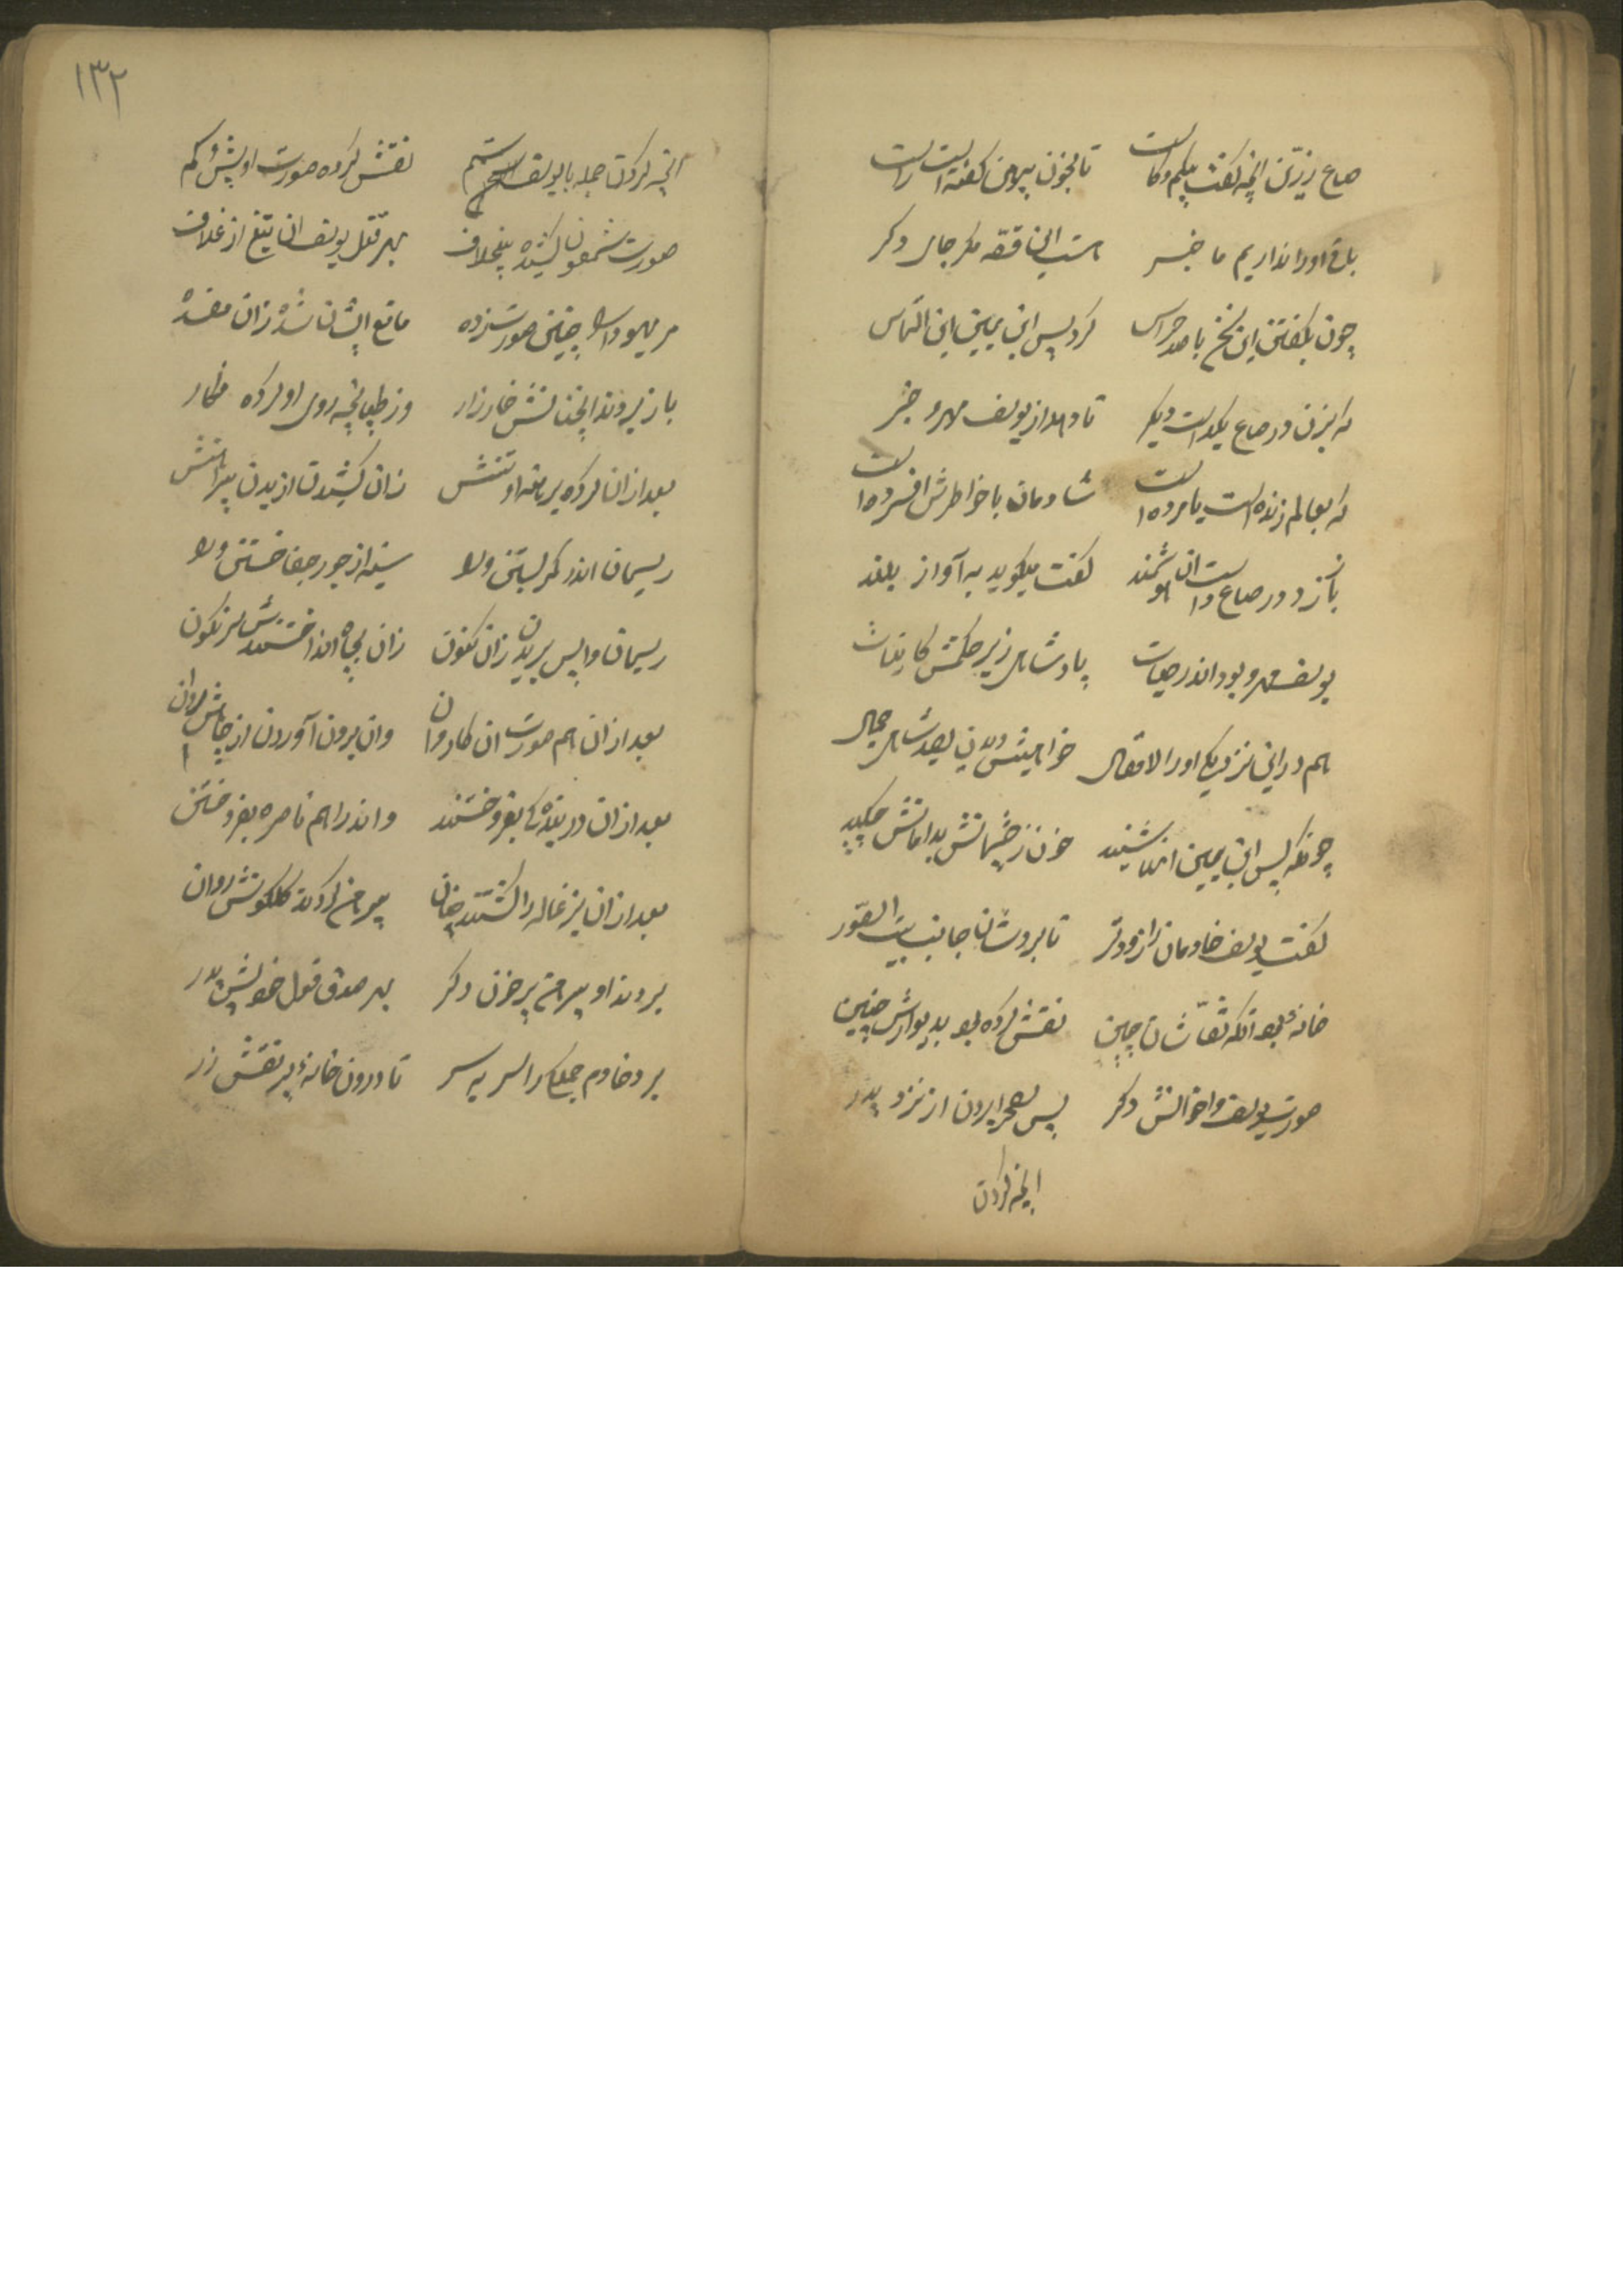 صاع زرین آنچه گفت بیکم و کاست تا بخون پیرهن گفته است راست
باقی اورا نداریم ما خبر هست این قصه مکر جای دکر
چون بگفتن این سخن با صد هراس کرد پس ابن یمین این التماس
که بزن در صاع یکدست دیکر تا دهد از یوسف مهرو خبر
که بعالم زنده است یا مرده است شادمان با خاطرش افسرده است
باز زد در صاع دست آن هوشمند گفت میکوید به آواز بلند
یوسف مهرو بود اندر حیات پادشاهی زیر حکمش کاینات
هم در این نزدیکی اورا لا
چونکه پس ابن یمین انرا شنید خون ز چشمانش بدامانش چکید
گفت یوسف خادمان را زودتر تا برد شان جانب بیت الصور
خانهٔ بود آنکه نقاشان چین نقش کرده بود بدیوارش چنین
صورت یوسف و اخوانش دکر پس بصحرا بردن از نزد پدر
آنچه کردن
۱۳۲
آنچه کردن جمله با یوسف ستم نقش کرده صورت او بیش و کم
صورت شمعون کشیده بیخلاف بهر قتل یوسف آن تیغ از غلاف
مر یهودا را چنین صورت زده مانع ایشان شده زان مفسده
باز بردند آنچنانش خار زار وز طپانچه روی او کرده
بعد از آن کرده برهنه او تنش زان کشیدن از بدن پیراهنش
ریسمان اندر کمر بستن ورا سینه از جور جفا خستن ورا
ریسمان واپس بریدن زان نکون زان بچاه انداختندش سرنکون
بعد از آن هم صورت آن کاروان وان برون آوردن از چاهش روان
بعد از آن در بندگی بفروختند واندرا هم ناصره بفروختن
بعد از آن بزغاله را کشتند چنان پیرهن کردند گلگونش روان
بردند او پیرهن پر خون دکر بهر صدق قول خویش پدر
برد خادم جملکا را سر به سر تا درون خانهٔ پر نقش زر